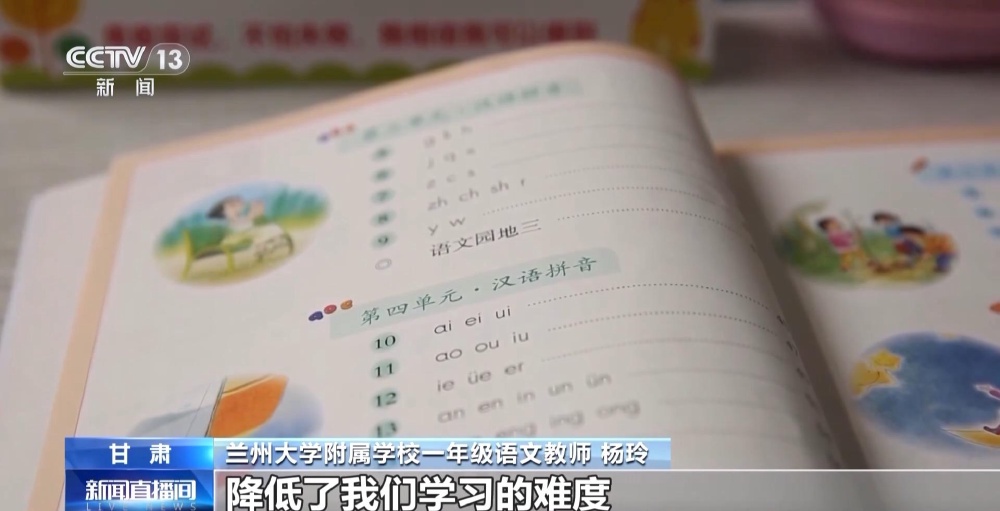 CCTV 13
新闻
g k h
j q x
z c s
zh ch sh r
y w
9
语文园地三
第四单元·汉语拼音
10 ai ei ui
11 ao ou iu
12 ie üe er
13 an en in un ün
eng ing ong
甘肃 兰州大学附属学校一年级语文教师 杨玲
新闻直播间 降低了我们学习的难度
LIVE NEWS